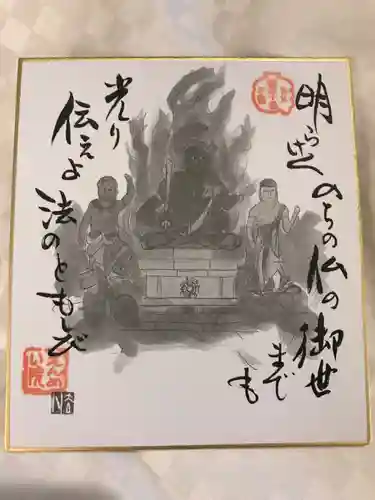 明らけく
のちの仏の御世
までも
光り
伝えよ
法のともしび